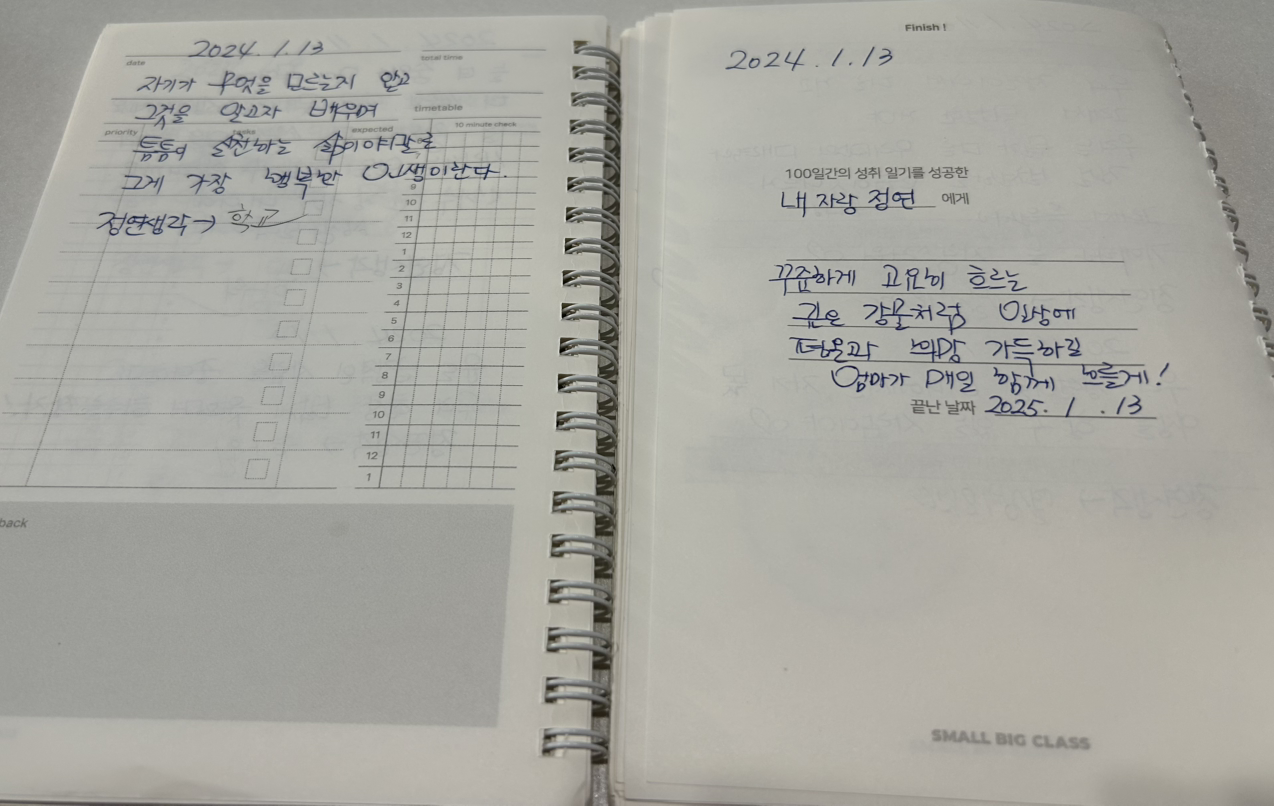 2024. 1. 13
date
total time
자기가 무엇을 모르는지 알고
그것을 알고자 배우며
timetable
priority
tasks
expected
10 minute check
틈틈이 실천하는 삶이야말로
그게 가장 행복한 인생이란다.
정연생각 → 학교
9
10
11
12
1
2
3
4
5
6
7
8
9
10
11
12
1
back
Finish !
2024. 1. 13
100일간의 성취 일기를 성공한
내 자랑 정연 에게
꾸준하게 고요히 흐르는
깊은 강물처럼 일상에
평온과 건강 가득하길
엄마가 매일 함께 할게!
끝난 날짜 2025. 1. 13
SMALL BIG CLASS